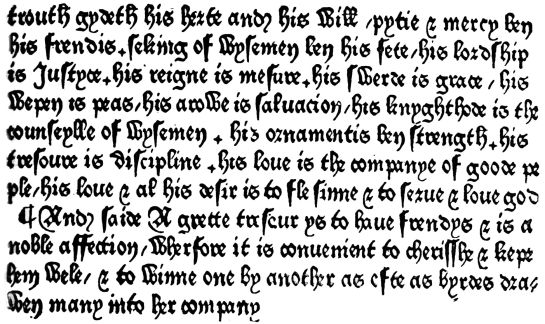 trouth gydeth his herte and his will /pytie & mercy ben
his frendis. seking of wysemen ben his fete/his lordship
is Justyce. his reigne is mesure. his swerde is grace / his
wepen is peas/his arowe is saluacion/his knyghthode is the
counseylle of wysemen . his ornamentis ben strength. his
tresoure is discipline . his loue is the companye of goode pe
ple/his loue & al his desir is to fle sinne & to serue & loue god
¶ And saide A grette tresour ys to haue frendys & is a
noble affection/wherfore it is conuenient to cherisshe & kepe
hem wele/ & to winne one by another as ofte as byrdes dra-
wen many into her company